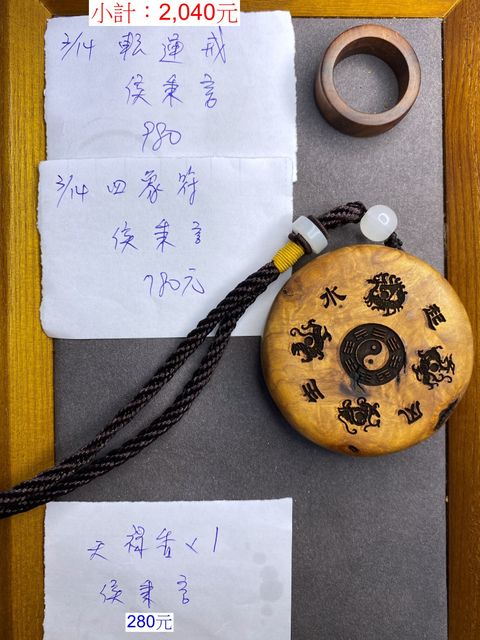 小計：2,040元
3/14 転運戒
侯秉言
980
3/14 四象符
侯秉言
780元
风生水起
天祿香x1
侯秉言
280元